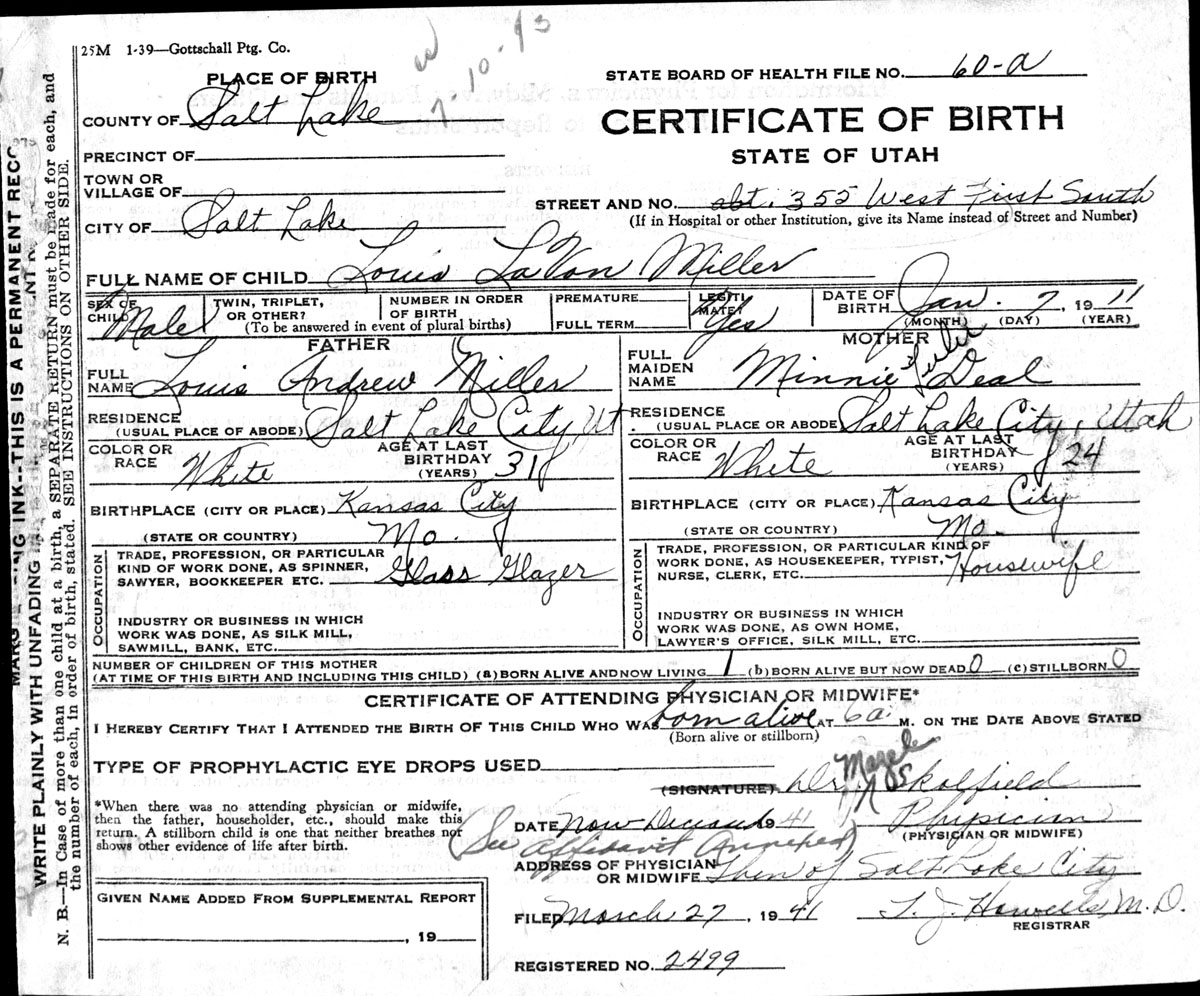 25M 1-39—Gottschall Ptg. Co.
7-10-13
PLACE OF BIRTH
STATE BOARD OF HEALTH FILE NO. 60-a
COUNTY OF Salt Lake
CERTIFICATE OF BIRTH
PRECINCT OF
STATE OF UTAH
TOWN OR
VILLAGE OF
STREET AND NO. abt. 352 West First South
(If in Hospital or other Institution, give its Name instead of Street and Number)
CITY OF Salt Lake
FULL NAME OF CHILD Louis LaVon Miller
SEX OF CHILD Male
TWIN, TRIPLET, OR OTHER?
NUMBER IN ORDER OF BIRTH
(To be answered in event of plural births)
PREMATURE
FULL TERM
LEGITIMATE? Yes
DATE OF BIRTH Jan. 2, 1911
(MONTH) (DAY) (YEAR)
FATHER
FULL NAME Louis Andrew Miller
RESIDENCE
(USUAL PLACE OF ABODE) Salt Lake City, Ut.
COLOR OR RACE White
AGE AT LAST BIRTHDAY (YEARS) 31
BIRTHPLACE (CITY OR PLACE) Kansas City
(STATE OR COUNTRY) Mo.
OCCUPATION
TRADE, PROFESSION, OR PARTICULAR
KIND OF WORK DONE, AS SPINNER,
SAWYER, BOOKKEEPER ETC. Glass Glazer
INDUSTRY OR BUSINESS IN WHICH
WORK WAS DONE, AS SILK MILL,
SAWMILL, BANK, ETC.
MOTHER
FULL MAIDEN NAME Minnie Deal
RESIDENCE
(USUAL PLACE OR ABODE) Salt Lake City, Utah
COLOR OR RACE White
AGE AT LAST BIRTHDAY (YEARS) 24
BIRTHPLACE (CITY OR PLACE) Kansas City
(STATE OR COUNTRY) Mo.
OCCUPATION
TRADE, PROFESSION, OR PARTICULAR KIND OF
WORK DONE, AS HOUSEKEEPER, TYPIST,
NURSE, CLERK, ETC. Housewife
INDUSTRY OR BUSINESS IN WHICH
WORK WAS DONE, AS OWN HOME,
LAWYER'S OFFICE, SILK MILL, ETC.
NUMBER OF CHILDREN OF THIS MOTHER
(AT TIME OF THIS BIRTH AND INCLUDING THIS CHILD) (a) BORN ALIVE AND NOW LIVING 1 (b) BORN ALIVE BUT NOW DEAD 0 (c) STILLBORN 0
CERTIFICATE OF ATTENDING PHYSICIAN OR MIDWIFE*
I HEREBY CERTIFY THAT I ATTENDED THE BIRTH OF THIS CHILD WHO WAS born alive AT 6 a. M. ON THE DATE ABOVE STATED
(Born alive or stillborn)
TYPE OF PROPHYLACTIC EYE DROPS USED
(SIGNATURE) Dr. Skolfield
*When there was no attending physician or midwife,
then the father, householder, etc., should make this
return. A stillborn child is one that neither breathes nor
shows other evidence of life after birth.
DATE Now Deceased 1941 Physician
(PHYSICIAN OR MIDWIFE)
(See Affidavit Annexed)
ADDRESS OF PHYSICIAN
OR MIDWIFE Then of Salt Lake City
GIVEN NAME ADDED FROM SUPPLEMENTAL REPORT
, 19
FILED March 27, 1941 T. J. Howells, M.D.
REGISTRAR
REGISTERED NO. 2499
WRITE PLAINLY WITH UNFADING INK--THIS IS A PERMANENT RECO
N. B.—In Case of more than one child at a birth, a SEPARATE RETURN must be made for each, and
the number of each, in order of birth, stated. SEE INSTRUCTIONS ON OTHER SIDE.